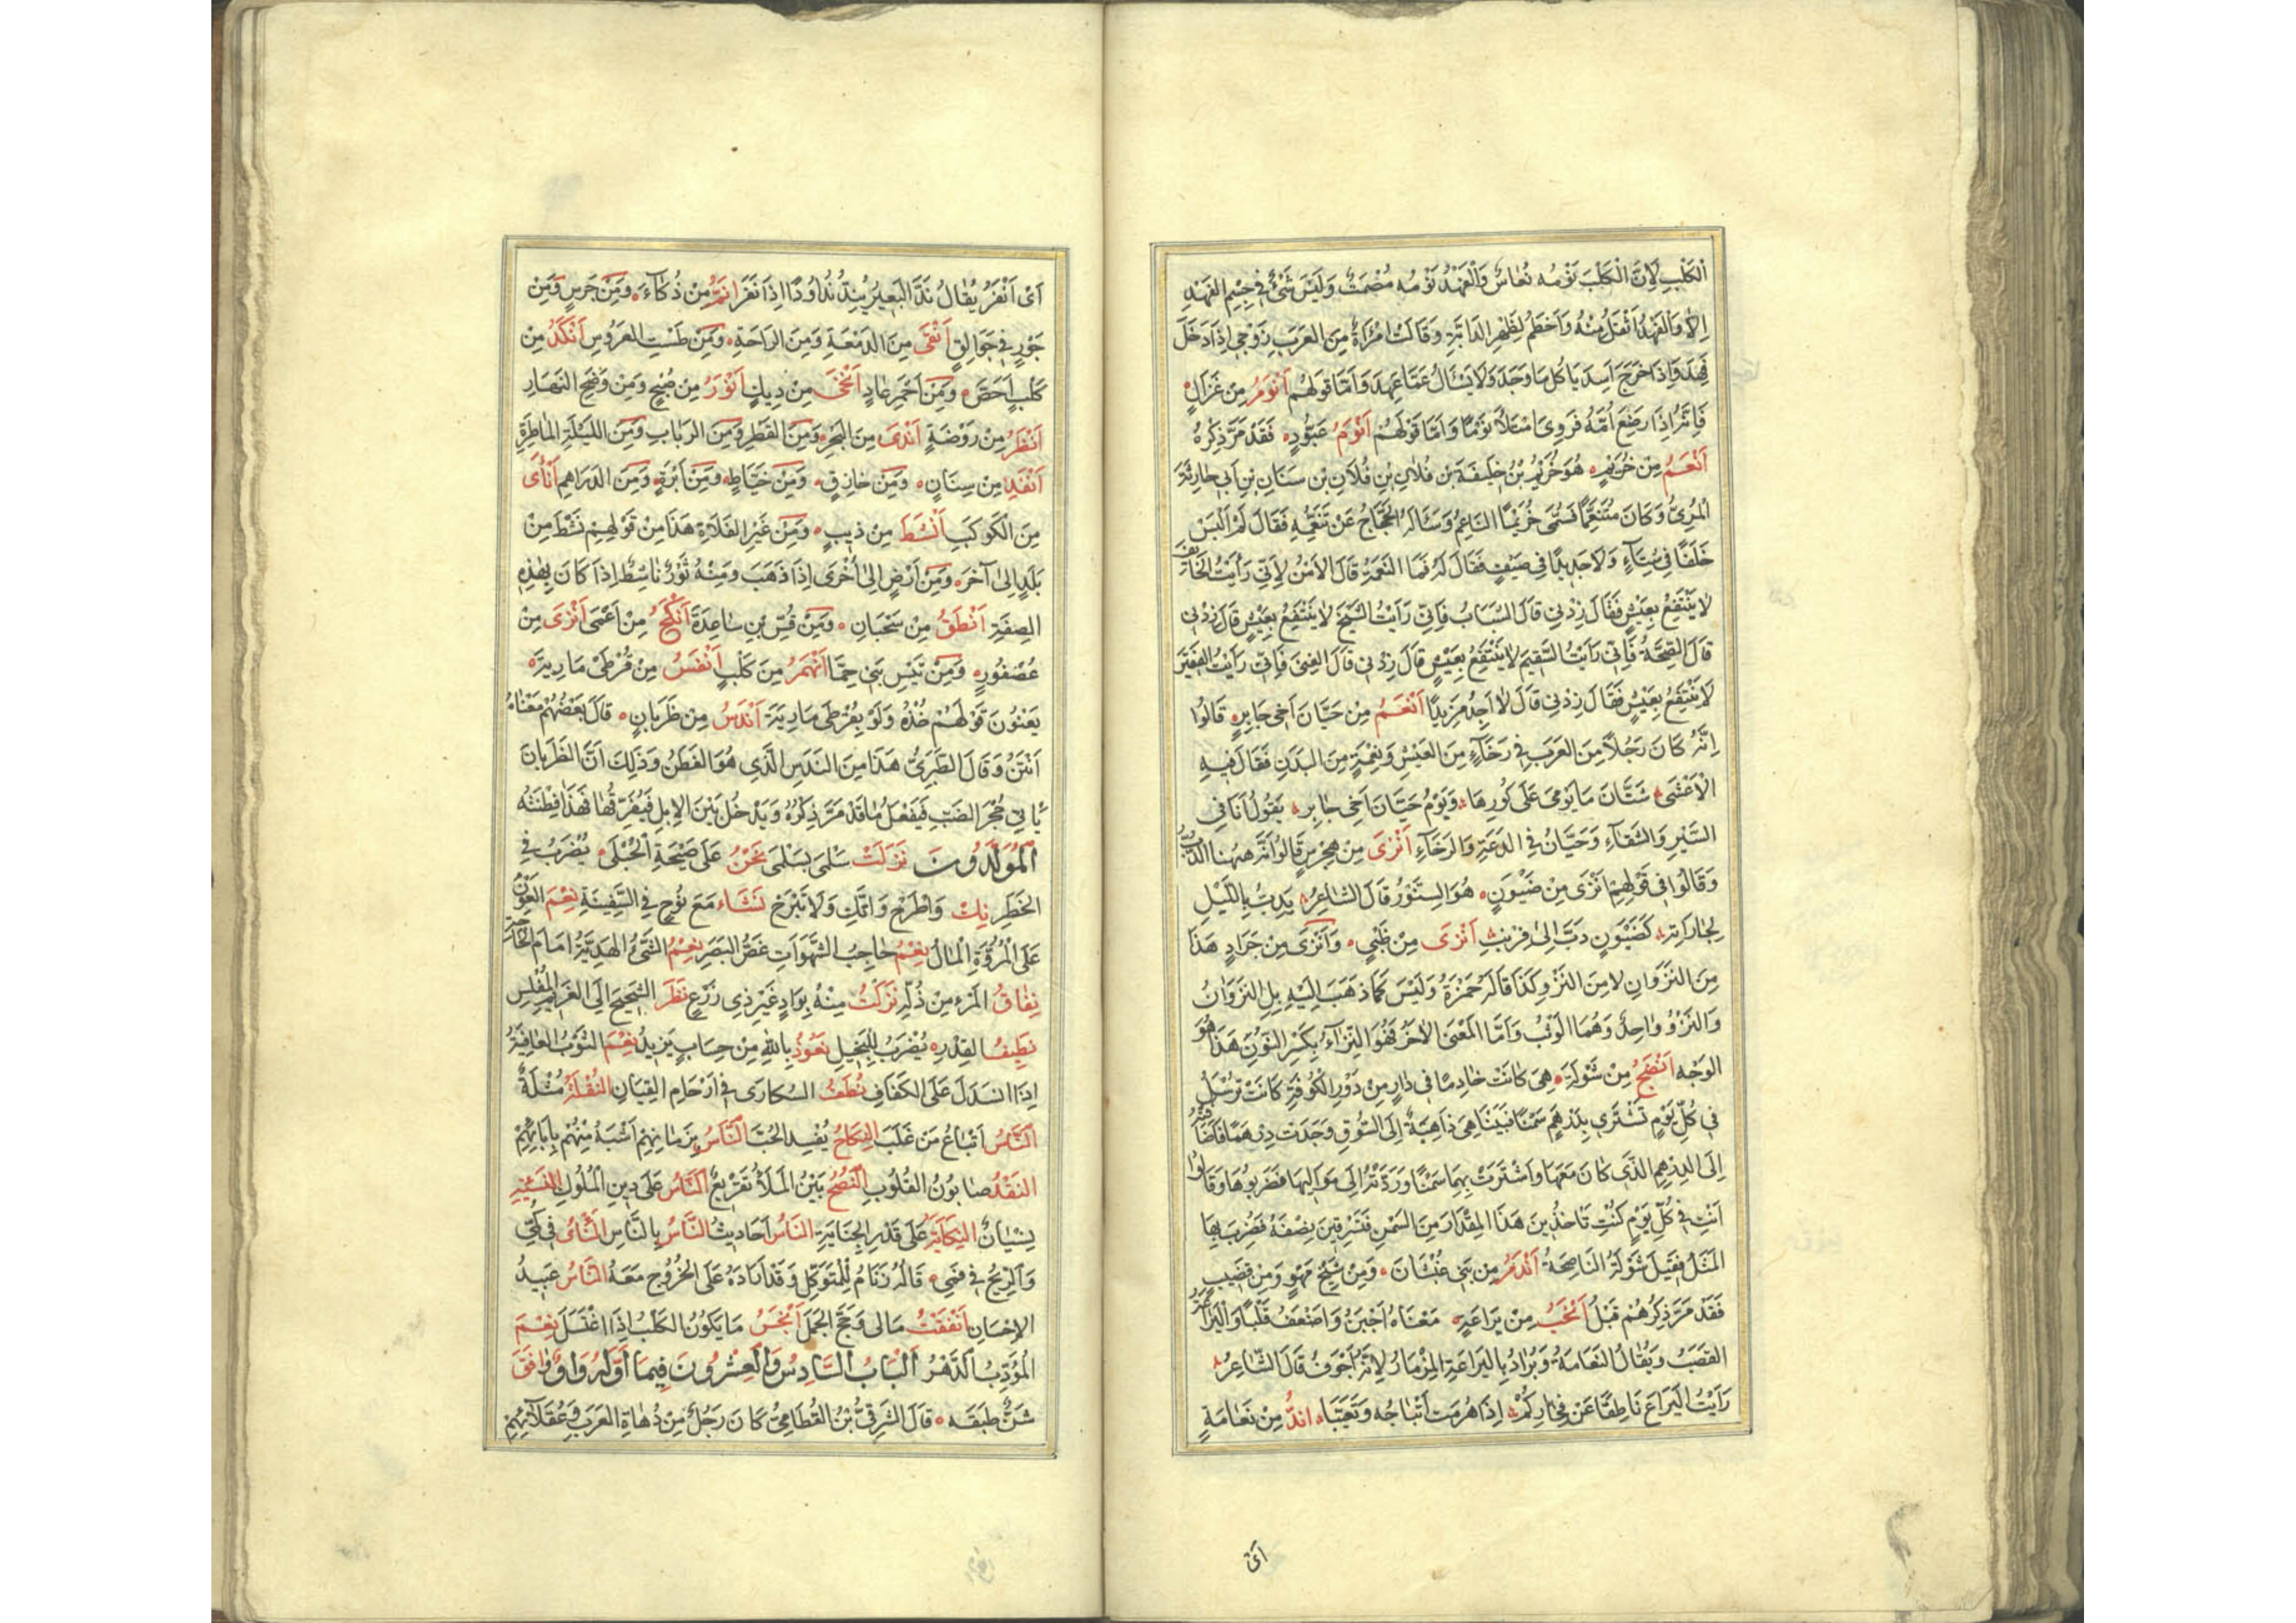 الْكَلْبِ لِاَنَّ الْكَلْبَ نَوْمُه نُعَاسٌ وَالْفَهْدُ نَوْمُه مُصْمَتٌ وَلَيْسَ شَيْءٌ فِي جِسْمِ الفَهْدِ
اِلاّ وَالفَهْدُ اَثْقَلُ مِنْهُ وَاَحْطَمُ لِظَهْرِ الدَابَّةِ وَقَالَتْ امْرَاَةٌ مِنَ العَرَبِ زَوْجِى اِذَا دَخَلَ
فَهِدَ وَاِذَا خَرَجَ اَسِدَ يَاكُل مَا وَجَدَ وَلَا يَسْالُ عَمَّا عَهِدَ وَاَمَّا قَولهُم اَنْوَمُ مِن غَزَالٍ
فَاِنَّهُ اِذَا رَضِعَ اُمَّهُ فَرَوِىَ امْتَلأَ نَوْمًا وَاَمَّا قَوْلهُم اَنْوَمُ عَبُّودٍ فَقَدْ مَرَّ ذِكْرُهُ
اَنْعَمُ مِنْ خُرَيْمٍ هُوَ خُرَيْمُ بْنُ خَلِيفَة بْن فُلاَنِ بْنِ فُلاَنِ بْن سِنَانِ بْنِ اَبِى حَارِثَة
المُرِىُّ وَكَانَ مُتَنَعِّمًا فَسُمِّىَ خُرَيْمًا النَاعِمُ وَسَأَلَهُ الحَجَّاجُ عَنْ تَنَعُّمِهِ فَقَالَ لَمْ اَلْبَسْ
خَلَقًا فِى شِتَاءٍ وَلَا جَدِيدًا فِى صَيْفٍ فَقَالَ لَهُ فَمَا النَعْمَةُ قَالَ الاَمْنُ لِاَنِّى رَاَيْتُ الخَائِفَ
لَا يَنْتَفِعُ بِعَيْشٍ فَقَالَ زِدْنِى قَالَ الشَّبَابُ فَاِنِّى رَاَيْتُ الشَيْخَ لَا يَنْتَفِعُ بِعَيْشٍ قَالَ زِدْنِى
قَالَ الصِّحَّةُ فَاِنِّى رَاَيْتُ السَّقِيمَ لَا يَنْتَفِعُ بِعَيْشٍ قَالَ زِدْنِى قَالَ الغِنَى فَاِنِّى رَاَيْتُ الفَقِيرَ
لَا يَنْتَفِعُ بِعَيْشٍ فَقَالَ زِدْنِى قَالَ لَا اَجِدُ مَزِيدًا اَنْعَمُ مِن حَيَّانَ اَخِى جَابِرٍ قَالُوا
اِنَّهُ كَانَ رَجُلاً مِنَ العَرَبِ فِى رَخَاءٍ مِنَ العَيْشِ وَنِعْمَةٍ مِنَ البَدَنِ فَقَالَ فِيهِ
الْاَعْشَى شَتَّانَ مَا يَوْمِى عَلَى كُورِهَا وَيَوْمُ حَيَّانَ اَخِى جَابِرِ يَقُولُ اَنَا فِى
السَّيْرِ وَالشَقَاءِ وَحَيَّانُ فِى الدَعَةِ وَالرَخَاءِ اَنْزَى مِنْ هِجْرِسٍ قَالُوا اَنَّهُ هٰهُنَا الدُّبُّ
وَقَالُوا فِى قَوْلِهِمْ اَنْزَى مِنْ ضَيْوَنٍ هُوَ السِنَّوْرُ قَالَ الشَاعِرُ يَدِبُّ بِاللَيْلِ
لِجَارَاتِهِ كَضَيْوَنٍ دَبَّ اِلى قِرنبِ اَنْزَى مِن ظَبْىٍ وَاَنْزَى مِن جَرَادٍ هَذَا
مِنَ النَزَوَانِ لَا مِنَ النَزْوِ كَذَا قَالَهُ حَمْزَةُ وَلَيْسَ كَمَا ذَهَبَ اِلَيْهِ بَلِ النَزَوَانُ
وَالنَزْوُ وَاحِدٌ وَهُمَا الْوَثْبُ وَاَمَّا المَعْنَى الاَخَرُ فَهُوَ النِّزَاءُ بِكَسْرِ النُوْنِ هَذَا هُوَ
الوَجْه اَنْصَحُ مِن شَوْلَةَ هِىَ كَانَتْ خَادِمًا فِى دَارٍ مِنْ دُوْرِ الْكُوْفَةِ كَانَتْ تُرْسَلُ
فِى كُلِّ يَوْمٍ تَشْتَرِى بِدَرْهَمٍ سَمْنًا فَبَيْنَا هِىَ ذَاهِبَةٌ اِلَى السُّوْقِ وَجَدَتْ دِرْهَمًا فَاَضَافَتْهُ
اِلَى الدِرْهَمِ الَّذِى كَانَ مَعَهَا وَاشْتَرَتْ بِهِمَا سَمْنًا وَرَدَّتْهُ اِلَى مَوَالِيهَا فَضَرَبُوهَا وَقَالُوا
اَنْتِ فِى كُلِّ يَوْمٍ كُنْتِ تَاخُذِيْنَ هَذَا المِقْدَارَ مِنَ السَمْنِ فَتَسْرِقِيْنَ نِصْفَهُ فَضُرِبَ بِهَا
المَثَلُ فَقِيْلَ شَوْلَةُ النَاصِحَةُ اَنْدَمُ مِن بَنِى غُبْشَانَ وَمِنْ شَيْخِ مَهْوٍ وَمِنْ قَضِيْبٍ
فَقَدْ مَرَّ ذِكْرُهُمْ قَبْلُ اَنْخَبُ مِنْ يَرَاعَةٍ مَعْنَاهُ اَجْبَنُ وَاَضْعَفُ قَلْبًا وَاليَرَاعَةُ
القَصَبُ وَيُقَالُ النَعَامَةُ وَيُرَادُ بِاليَرَاعَةِ المِزْمَارُ لِاَنَّهُ اَجْوَفُ قَالَ الشَاعِرُ
رَاَيْتُ اليَرَاعَ نَاطِقًا عَنْ فِخَارِكُمْ اِذَا هُزِمَتْ اَثْبَاجُه وَتَعَبَّا اندُّ مِنْ نَعَامَةٍ
اَى
اَىْ اَنْفَرُ يُقَالُ نَدَّ البَعِيْرُ يَنِدُّ نُدُوْدًا اِذَا نَفَرَ انَمُّ مِنْ ذُكَاءَ وَمِنْ جَرَسٍ وَمِن
جَوْزٍ فِى جَوَالِقٍ اَنْقَى مِنَ الدَمْعَةِ وَمِنَ الرَاحَةِ وَمِنْ طَسْتِ العَرُوْسِ اَنْكَدُ مِن
كَلْبٍ اَحَصَّ وَمِنْ اَحْمَرِ عَادٍ اَنْخَى مِنْ دِيكٍ اَنْوَرُ مِن صُبْحٍ وَمِن وَضَحِ النَهَارِ
اَنْضَرُ مِنْ رَوْضَةٍ اَنْدَى مِنَ البَحْرِ وَمِنَ القَطْرِ وَمِنَ الرَبَابِ وَمِنَ اللَيْلَةِ المَاطِرَةِ
اَنْفَدُ مِن سِنَانٍ وَمِن خَازِقٍ وَمِنْ خَيَّاطٍ وَمِنْ اِبْرَةٍ وَمِنَ الدَرَاهِم اَنْأَى
مِنَ الْكَوْكَبِ اَنْشَطُ مِن ذيبٍ وَمِنْ عَيْرِ الفَلَاةِ هَذَا مِنْ قَوْلِهِمْ نَشَطَ مِنْ
بَلَدٍ اِلَى آخَرَ وَمِنْ اَرْضٍ اِلَى اُخْرَى اِذَا ذَهَبَ وَمِنْهُ ثَوْرٌ نَاشِطٌ اِذَا كَانَ بِهٰذِهِ
الصِفَةِ اَنْطَقُ مِن سَحْبَانِ وَمِنْ قُسِّ بْنِ سَاعِدَةَ اَنْكَحُ مِنْ اَعْمَى اَنْزَى مِن
عُصْفُورٍ وَمِنْ تَيْسِ بَنِى حِمَّا اَنْهَمُ مِنَ كَلْبٍ اَنْفَسُ مِنْ قُرْطَىْ مَارِيَةَ
يَعْنُوْنَ قَوْلَهُمْ خُذْهُ وَلَوْ بِقُرْطَىْ مَارِيَةَ اَنْدَسُ مِن ظَرِبَانٍ قَالَ بَعْضُهُمْ مَعْنَاهُ
اَنْتَنُ وَقَالَ الطَبَرِىُّ هَذَا مِنَ النَدسِ الَّذِى هُوَ الفَطَنُ وَذَلِكَ اَنَّ الظَرِبَانَ
يَاتِى جُحْرَ الضَبِّ فَيَفْعَلُ مَا قَدْ مَرَّ ذِكْرُهُ وَيَدْخُلُ بَيْنَ الاِبِلِ فَيُفَرِّقُهَا فَهَذَا فِطْنَتُه
المُوَلَّدُوْنَ نَزَلَتْ سَلْمَى بِسَلْمَى نَحْنُ عَلَى صَيْحَةِ الْحُبْلَى يُضْرَبُ فِى
الخَطَرِ نِكْ وَاطْرَحْ وَاتَّكِ وَلَا تَبْرَحْ نَشَاء مَعَ نُوْحٍ فِى السَّفِيْنَةِ نِعْمَ العَوْنُ
عَلَى المُرُوَّةِ الْمَالُ نِعْمُ حَاجِبُ الشَّهَوَاتِ غَضُّ البَصَرِ نِعْمُ الشَّىْءُ الهَدِيَّةُ اَمَامَ الحَاجَةِ
نِفَاقُ المَرْءِ مِنْ ذُلِّهِ نَزَلْتُ مِنْهُ بِوَادٍ غَيْرِ ذِى زَرْعٍ نَظَرَ الشَحِيْحِ اِلَى الغَرِيْمِ المُفْلِسِ
نَظِيْفُ القِدْرِ يُضْرَبُ لِلبَخِيلِ نَعُوْذُ بِاللهِ مِنْ حِسَابٍ يَزِيْدُ نِعْمَ الثَوْبُ العَافِيَةُ
اِذَا انْسَدَلَ عَلَى الكَفَافِ نُطَفُ السُكَارَى فِى اَرْحَامِ القِيَانِ النُقْلَةُ مُثْلَةٌ
النَّاسُ اَتْبَاعُ مَنْ غَلَبَ النِكَاحُ يُفْسِدُ الحُبَّ النَّاسُ بِزَمَانِهِمْ اَشْبَهُ مِنْهُمْ بِابَائِهِمْ
النَقْدُ صَابُوْنُ القُلُوبِ النُصْحُ بَيْنَ المَلَأِ تَقْرِيْعٌ النَّاسُ عَلَى دِيْنِ الْمُلُوْكِ النَسِيْئَةِ
يِسْيَانٌ النِكَايَةُ عَلَى قَدْرِ الجِنَايَةِ النَاسُ اَحَادِيْثُ النَّاسُ بِالنَّاسِ النَّاىُ فِى كُمِّى
وَالرِيْحُ فِى فَمِى قَالَهُ زَنَامٌ لِلْمُتَوَكِّلِ وَقَد اَرَادَهُ عَلَى الخُرُوْجِ مَعَهُ النَّاسُ عَبِيْدُ
الاِحْسَانِ اَنْفَقْتُ مَالِى وَحَجَّ الجَمَلُ اَنْجَسُ مَا يَكُوْنُ الكَلْبُ اِذَا اغْتَسَلَ نِعْمَ
المُؤَدِّبُ الدَّهْرُ اَلْبَابُ السَّادِسُ وَالْعِشْرُوْنَ فِيمَا اَوَّلُهُ وَاوٌ وَافَقَ
شَنٌّ طَبَقَه قَالَ الشَرْقِىُّ بْنُ القُطَامِىُّ كَانَ رَجُلٌ مِنْ دُهَاةِ العَرَبِ وَعُقَلَائِهِمْ